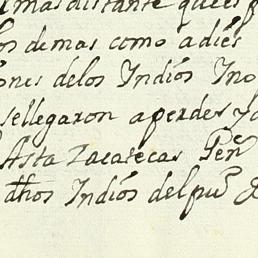 mas distante que es
os demas como a dies
ones de los Indios Ino
se llegaron a perdes y a
Asta Zacatecas Pen.
dhos Indios del pu.